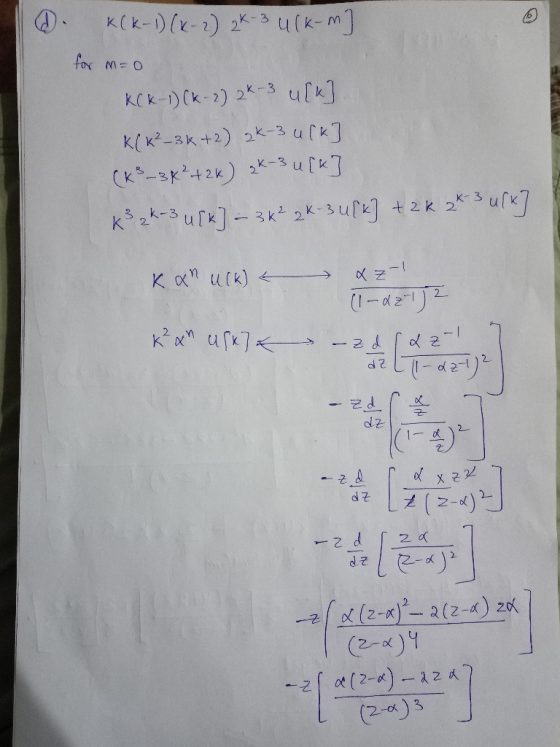 (d). K(K-1)(K-2) 2^{K-3} u[K-m] (6)
for m=0
K(K-1)(K-2) 2^{K-3} u[K]
K(K²-3K+2) 2^{K-3} u[K]
(K³-3K²+2K) 2^{K-3} u[K]
K³ 2^{K-3} u[K] - 3K² 2^{K-3} u[K] + 2K 2^{K-3} u[K]
K αⁿ u[K] ↔ αz⁻¹ / (1-αz⁻¹)²
K² αⁿ u[K] ↔ -z d/dz [αz⁻¹ / (1-αz⁻¹)²]
-z d/dz [(α/z) / (1-α/z)²]
-z d/dz [α × z² / z(z-α)²]
-z d/dz [zα / (z-α)²]
-z [α(z-α)² - 2(z-α) zα / (z-α)⁴]
-z [α(z-α) - 2zα / (z-α)³]